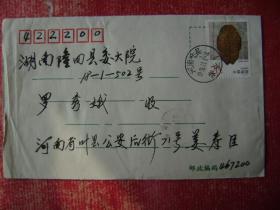 422200
湖南隆回县委大院
18-1-502号
罗秀娥 收
河南省叶县公安后街71号姜孝臣
邮政编码 467200